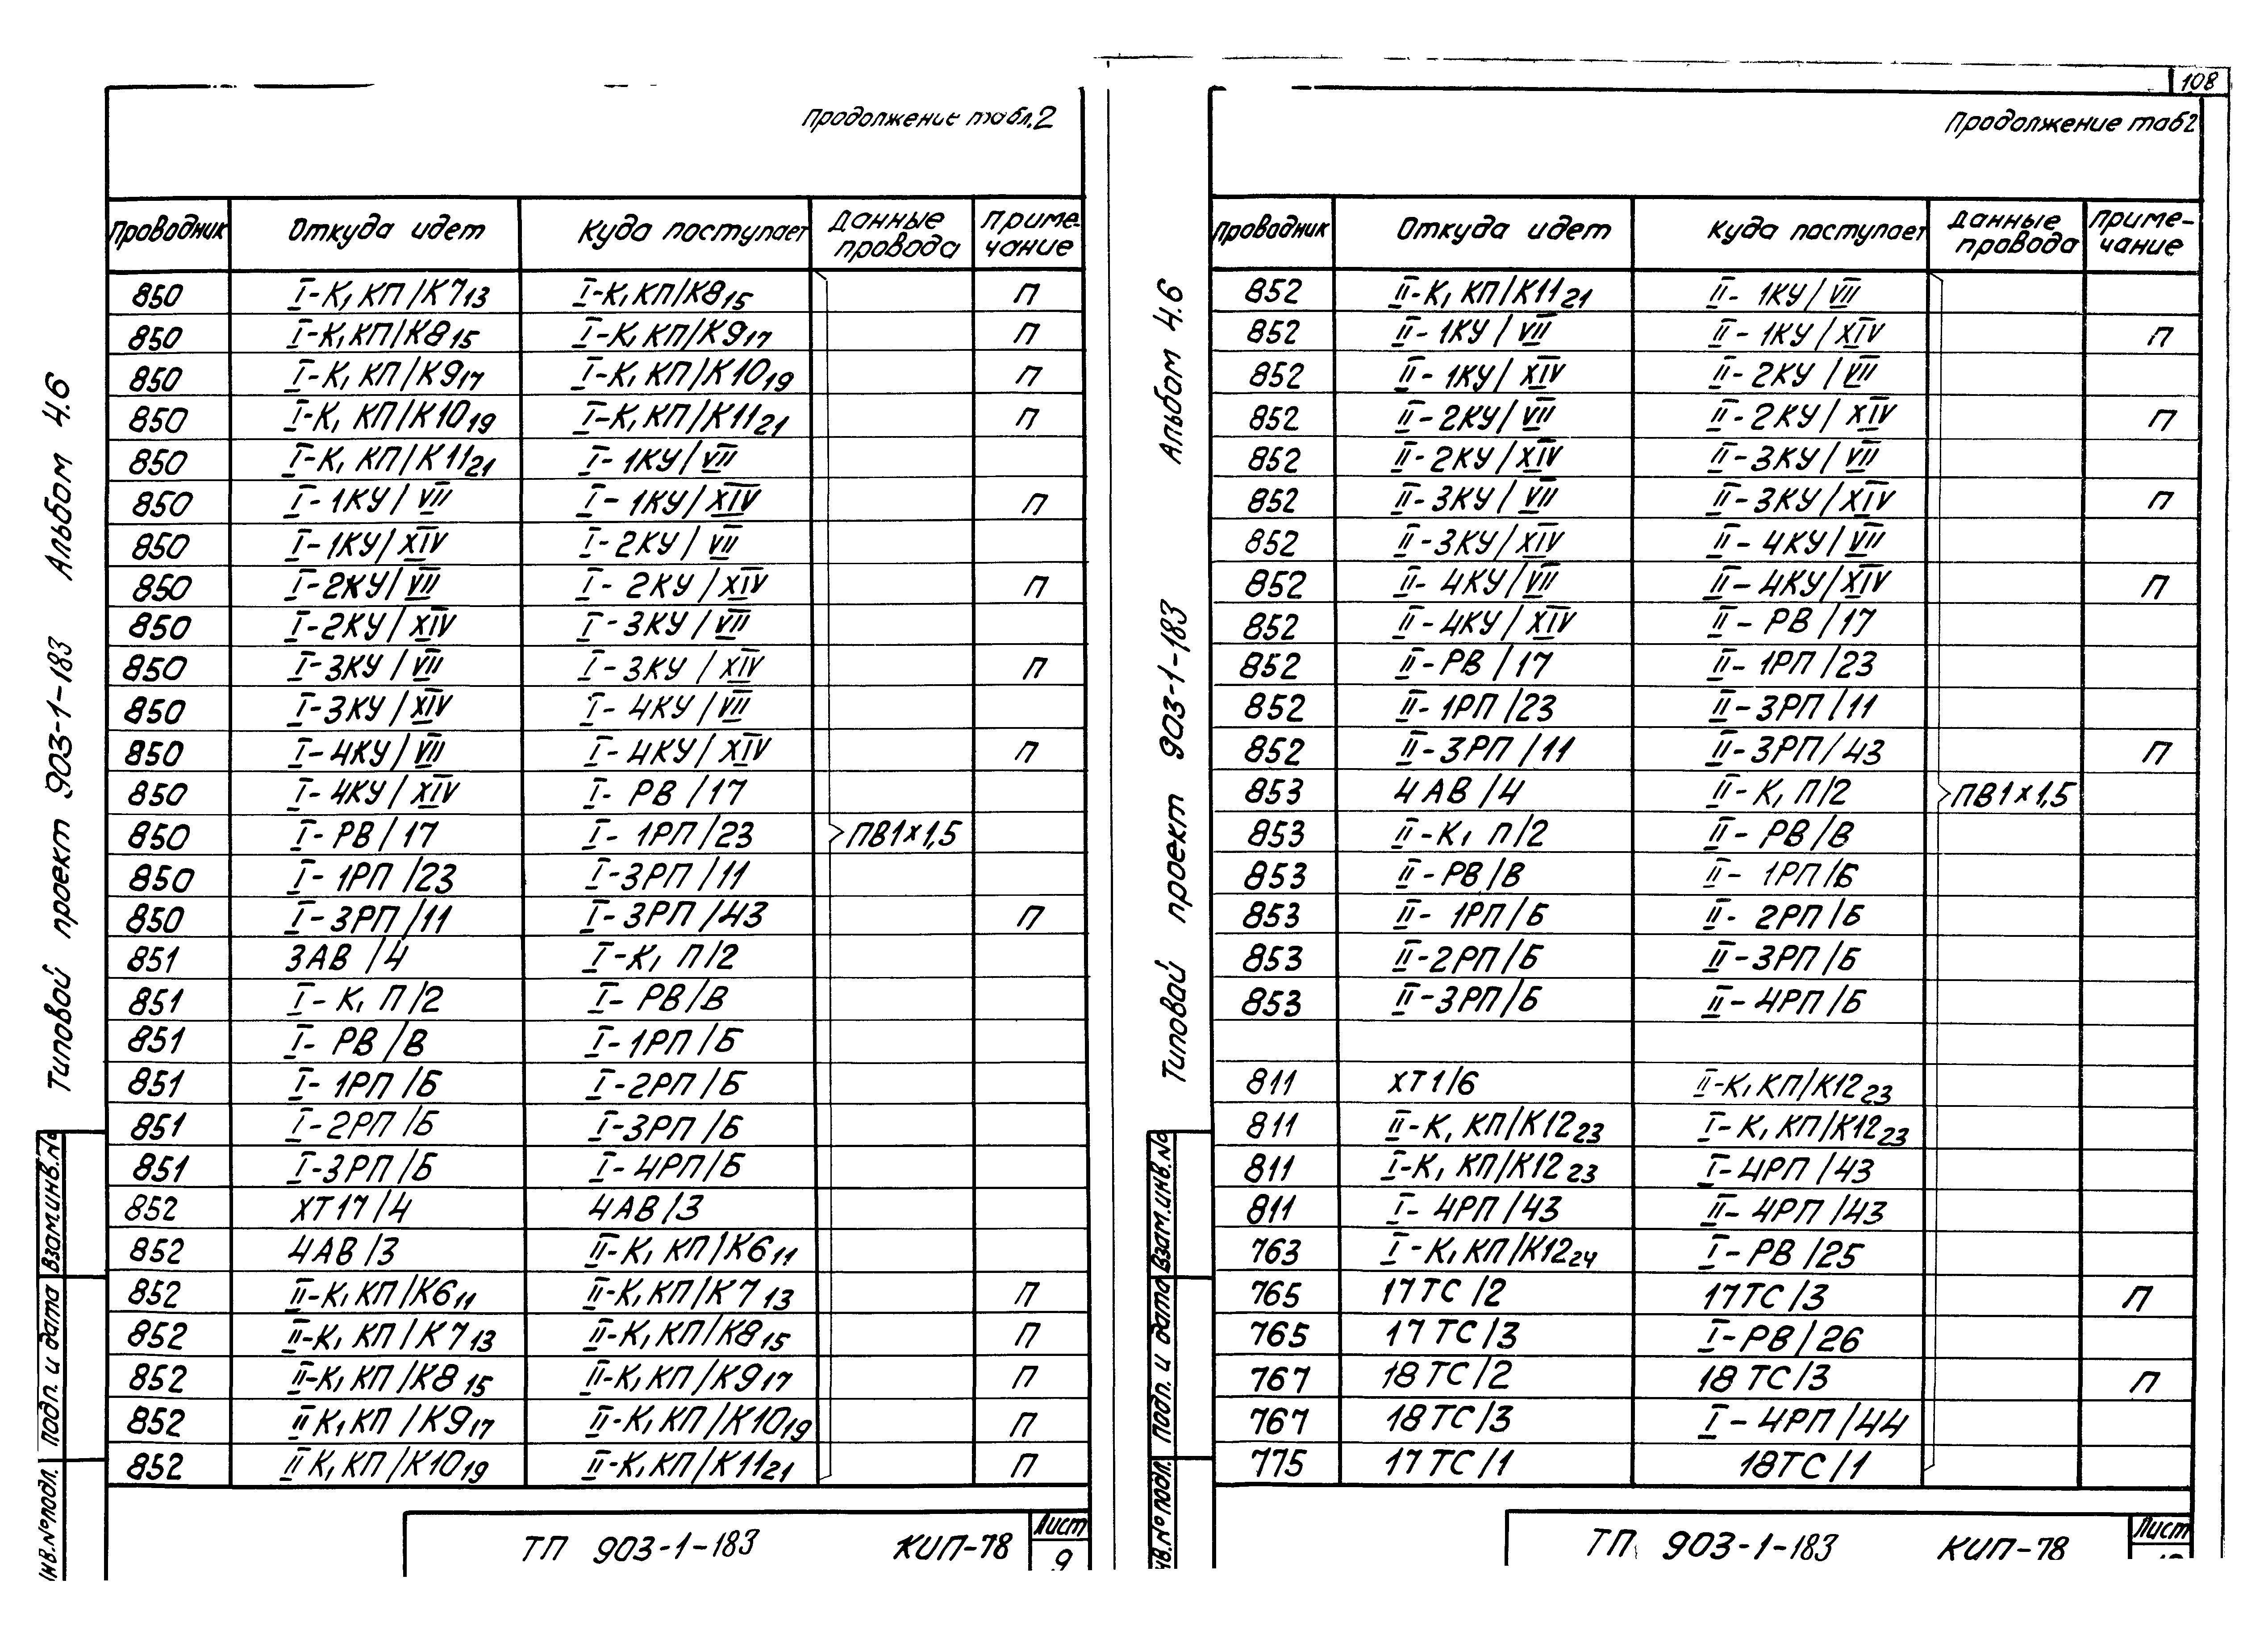 108
Продолжение табл.2
Проводник | Откуда идет | Куда поступает | Данные провода | Примечание
850 | I-К, КП/К7 13 | I-К, КП/К8 15 | П
850 | I-К, КП/К8 15 | I-К, КП/К9 17 | П
850 | I-К, КП/К9 17 | I-К, КП/К10 19 | П
850 | I-К, КП/К10 19 | I-К, КП/К11 21 | П
850 | I-К, КП/К11 21 | I-1КУ/VII
850 | I-1КУ/VII | I-1КУ/XIV | П
850 | I-1КУ/XIV | I-2КУ/VII
850 | I-2КУ/VII | I-2КУ/XIV | П
850 | I-2КУ/XIV | I-3КУ/VII
850 | I-3КУ/VII | I-3КУ/XIV | П
850 | I-3КУ/XIV | I-4КУ/VII
850 | I-4КУ/VII | I-4КУ/XIV | П
850 | I-4КУ/XIV | I-РВ/17
850 | I-РВ/17 | I-1РП/23 | ПВ1×1,5
850 | I-1РП/23 | I-3РП/11
850 | I-3РП/11 | I-3РП/43 | П
851 | 3АВ/4 | I-К, П/2
851 | I-К, П/2 | I-РВ/В
851 | I-РВ/В | I-1РП/Б
851 | I-1РП/Б | I-2РП/Б
851 | I-2РП/Б | I-3РП/Б
851 | I-3РП/Б | I-4РП/Б
852 | ХТ17/4 | 4АВ/3
852 | 4АВ/3 | II-К, КП/К6 11
852 | II-К, КП/К6 11 | II-К, КП/К7 13 | П
852 | II-К, КП/К7 13 | II-К, КП/К8 15 | П
852 | II-К, КП/К8 15 | II-К, КП/К9 17 | П
852 | II К, КП/К9 17 | II-К, КП/К10 19 | П
852 | II К, КП/К10 19 | II-К, КП/К11 21 | П
ТП 903-1-183 КИП-78
Лист
9
Типовой проект 903-1-183 Альбом 4.6
Взам.инв.№
Подп. и дата
Инв.№подл.
Продолжение таб2
Проводник | Откуда идет | Куда поступает | Данные провода | Примечание
852 | II-К, КП/К11 21 | II-1КУ/VII
852 | II-1КУ/VII | II-1КУ/XIV | П
852 | II-1КУ/XIV | II-2КУ/VII
852 | II-2КУ/VII | II-2КУ/XIV | П
852 | II-2КУ/XIV | II-3КУ/VII
852 | II-3КУ/VII | II-3КУ/XIV | П
852 | II-3КУ/XIV | II-4КУ/VII
852 | II-4КУ/VII | II-4КУ/XIV | П
852 | II-4КУ/XIV | II-РВ/17
852 | II-РВ/17 | II-1РП/23
852 | II-1РП/23 | II-3РП/11
852 | II-3РП/11 | II-3РП/43 | П
853 | 4АВ/4 | II-К, П/2 | ПВ1×1,5
853 | II-К, П/2 | II-РВ/В
853 | II-РВ/В | II-1РП/Б
853 | II-1РП/Б | II-2РП/Б
853 | II-2РП/Б | II-3РП/Б
853 | II-3РП/Б | II-4РП/Б
811 | ХТ1/6 | II-К, КП/К12 23
811 | II-К, КП/К12 23 | I-К, КП/К12 23
811 | I-К, КП/К12 23 | I-4РП/43
811 | I-4РП/43 | II-4РП/43
763 | I-К, КП/К12 24 | I-РВ/25
765 | 17ТС/2 | 17ТС/3 | П
765 | 17ТС/3 | I-РВ/26
767 | 18ТС/2 | 18ТС/3 | П
767 | 18ТС/3 | I-4РП/44
775 | 17ТС/1 | 18ТС/1
ТП 903-1-183 КИП-78
Лист
Типовой проект 903-1-183 Альбом 4.6
Взам.инв.№
Подп. и дата
Инв.№подл.